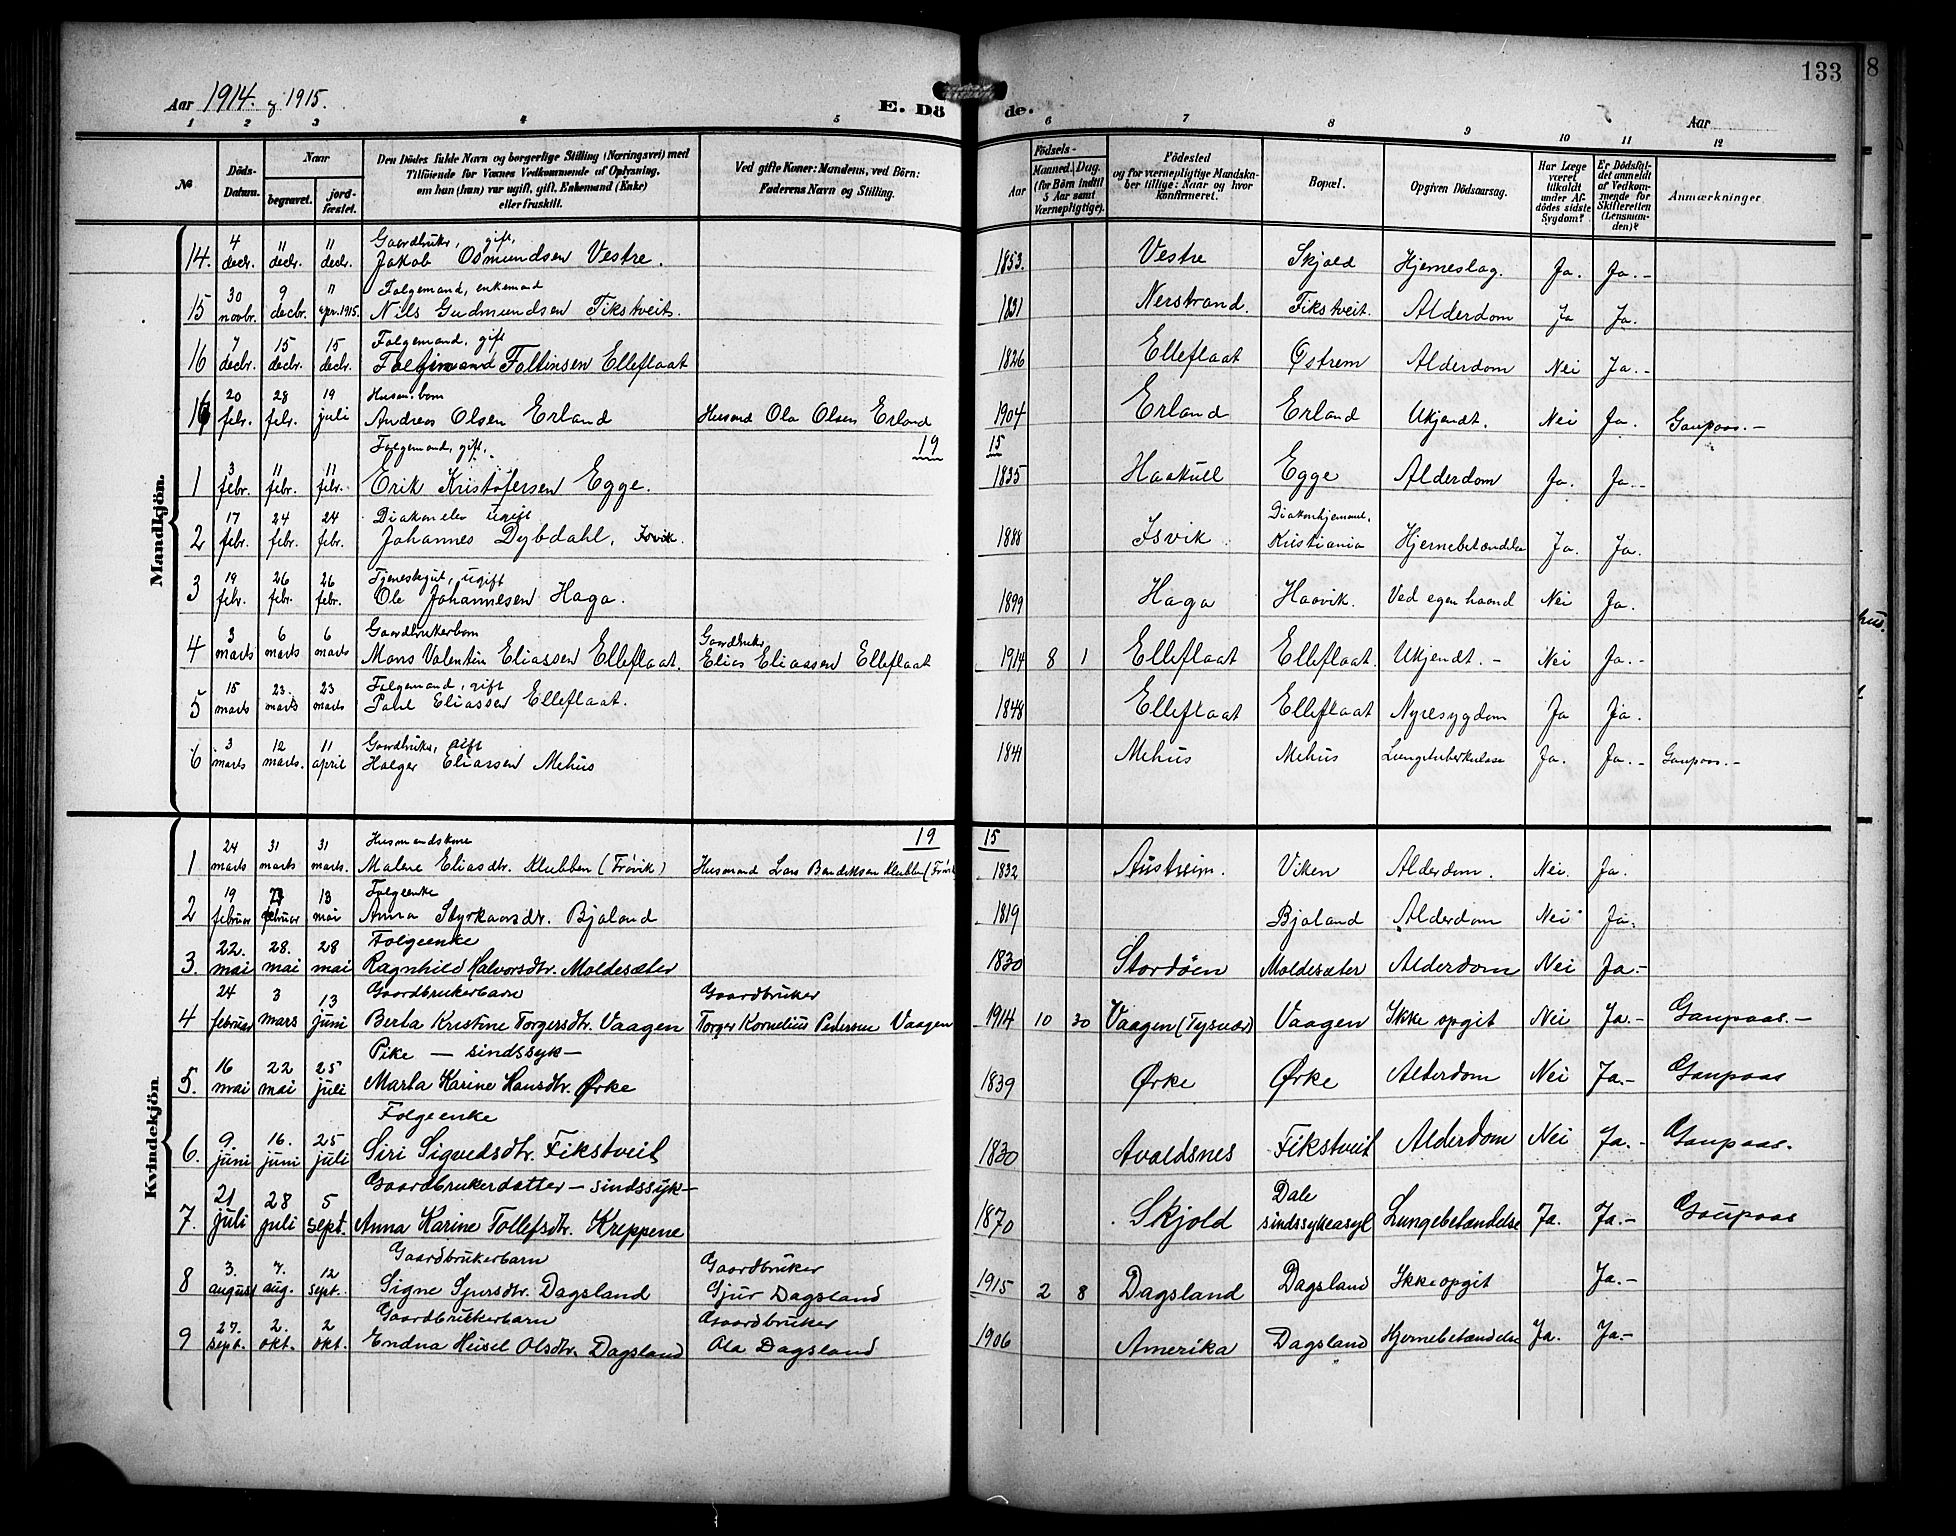 133
8
Aar 1914. og 1915.
E. Döde.
Aar
1 2 3 4 5 6 7 8 9 10 11 12
№
Döds-Datum.
Naar
begravet.
jordfæstet.
Den Dödes fulde Navn og borgerlige Stilling (Næringsvei) med Tilföiende for Voxnes Vedkommende af Oplysning, om han (hun) var ugift, gift, Enkemand (Enke) eller fraskilt.
Ved gifte Koner: Mandens, ved Börn: Faderens Navn og Stilling.
Födsels-
Aar
Maaned. Dag.
(for Börn indtil 5 Aar samt Værnepligtige).
Födested og for værnepligtige Mandskaber tillige: Naar og hvor konfirmeret.
Bopæl.
Opgiven Dödsaarsag.
Har Læge været tilkaldt under Afdödes sidste Sygdom?
Er Dödsfaldet anmeldt af Vedkommende for Skifteretten (Lensmanden)?
Anmærkninger.
Mandkjön.
Gaardbruker, gift,
14. 4 decbr. 11 decbr. 11 decbr. Jakob Osmundsen Vestre. 1853. Vestre Skjold Hjerneslag. Ja. Ja.-
Folgemand, enkemand
15 30 novbr. 9 decbr. 11 apr. 1915. Nils Gudmundsen Fikstveit. 1831 Nerstrand. Fikstveit. Alderdom Ja Ja.
Folgemand, gift
16 7 decbr. 15 decbr. 15 decbr. Foltinsen Elleflaat 1826 Elleflaat Østrem Alderdom Nei Ja.-
Husm.barn
17 20 febr. 28 febr. 19 juli Andreas Olsen Erland Husmand Ola Olsen Erland 1904 Erland Erland Ukjendt. Nei Ja. Gaupaas.-
19 15
Folgemand, gift,
1 3 febr. 11 febr. 11 febr. Erik Kristofersen Egge. 1835 Haatull Egge Alderdom Ja. Ja.-
Diakonelev ugift
2 17 febr. 24 febr. 24 febr. Johannes Dybdahl, Isvik. 1888 Isvik. Diakonhjemmet, Kristiania Hjernebetændelse Ja. Ja.
Tjenestegut, ugift
3 19 febr. 26 febr. 26 febr. Ole Johannesen Haga. 1899 Haga Haavik. Ved egen haand Nei Ja.
Gaardbrukerbarn Gaardbruker
4 3 marts 6 marts 6 marts Mons Valentin Eliassen Elleflaat. Elias Eliassen Elleflaat 1914 8 1 Elleflaat Elleflaat. Ukjendt.- Nei Ja.-
Folgemand, gift
5 15 marts 23. marts 23 marts Paul Eliassen Elleflaat. 1848 Elleflaat Elleflaat Nyresygdom Ja Ja.
Gaardbruker, gift
6 3 marts 12 marts. 11 april Holger Eliassen Mehus 1841 Mehus Mehus Lungetuberkulose Ja. Ja.- Gaupaas.-
Kvindekjön
19 15
Husmandskone
1 24 marts 31 marts 31 marts. Malene Eliasdtr. Klubben (Frövik) Husmand Lars Bendiksen Klubben (Frövik) 1832 Austreim. Viken Alderdom. Nei. Ja.
Folgeenke
2 19 februar 23 februar 13 mai Anna Styrkaarsdtr. Bjoland 1819 Bjoland Alderdom Nei Ja.
Folgeenke
3. 22. mai 28. mai 28 mai Ragnhild Halvorsdtr. Moldesæter 1830 Stordöen Moldesæter Alderdom Nei Ja.-
Gaardbrukerbarn Gaardbruker
4 24 februar 3 mars 13 juni Berta Kristine Torgersdtr. Vaagen Torger Kornelius Pedersen Vaagen 1914 10 30 Vaagen (Tysvær) Vaagen Ikke opgit Nei Ja.- Gaupaas.-
Pike — sindssyk—
5. 16 mai 22 mai 25 juli Marta Karine Hansdtr. Ørke 1839 Ørke Ørke Alderdom Nei Ja.- Gaupaas
Folgeenke
6. 9. juni 16. juni 25 juli Siri Sigvedsdtr. Fikstveit 1830 Avaldsnes Fikstveit Alderdom Nei Ja.- Gaupaas.
Gaardbrukerdatter — sindssyk—
7. 21 juli 28 juli 5 sept. Anna Karine Tollefsdtr. Kreppene 1870 Skjold Dale sindssykeasyl Lungebetændelse Ja. Ja.- Gaupaas
Gaardbrukerbarn Gaardbruker
8 3. august 7. aug. 12 sept. Signe Gjursdtr. Dagsland Gjur Dagsland 1915 2 8 Dagsland Dagsland Ikke opgit Ja.-
Gaardbrukerbarn Gaardbruker
9 27. sept. 2. okt. 2 okt. Endna Heisel Olsdtr. Dagsland Ola Dagsland 1906 Amerika Dagsland Hjernebetændelse Ja. Ja.-